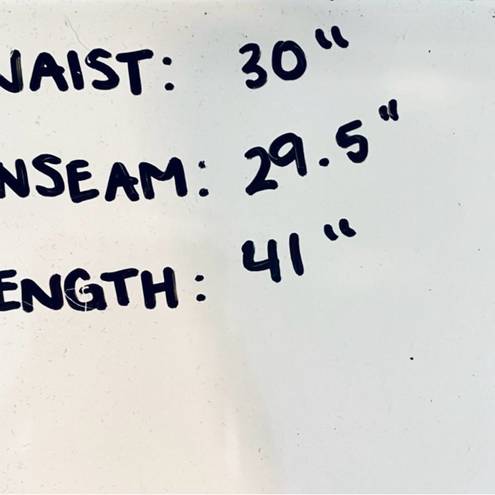 WAIST: 30"
NSEAM: 29.5"
ENGTH: 41"